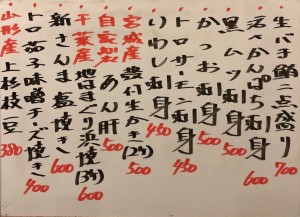 生バチ鮪二点盛り 700
活さかんぱち刺身 600
黒ムツ刺身 500
かつお刺身 500
トロサーモン刺身 450
いわし刺身 450
宮城産 殻付生かき(2ケ) 500
自家製 あん肝 500
千葉産 地はまぐり浜焼(3ケ) 600
新さんま塩焼き 600
トロ茄子味噌チーズ焼き 400
山形産 上杉枝豆 380